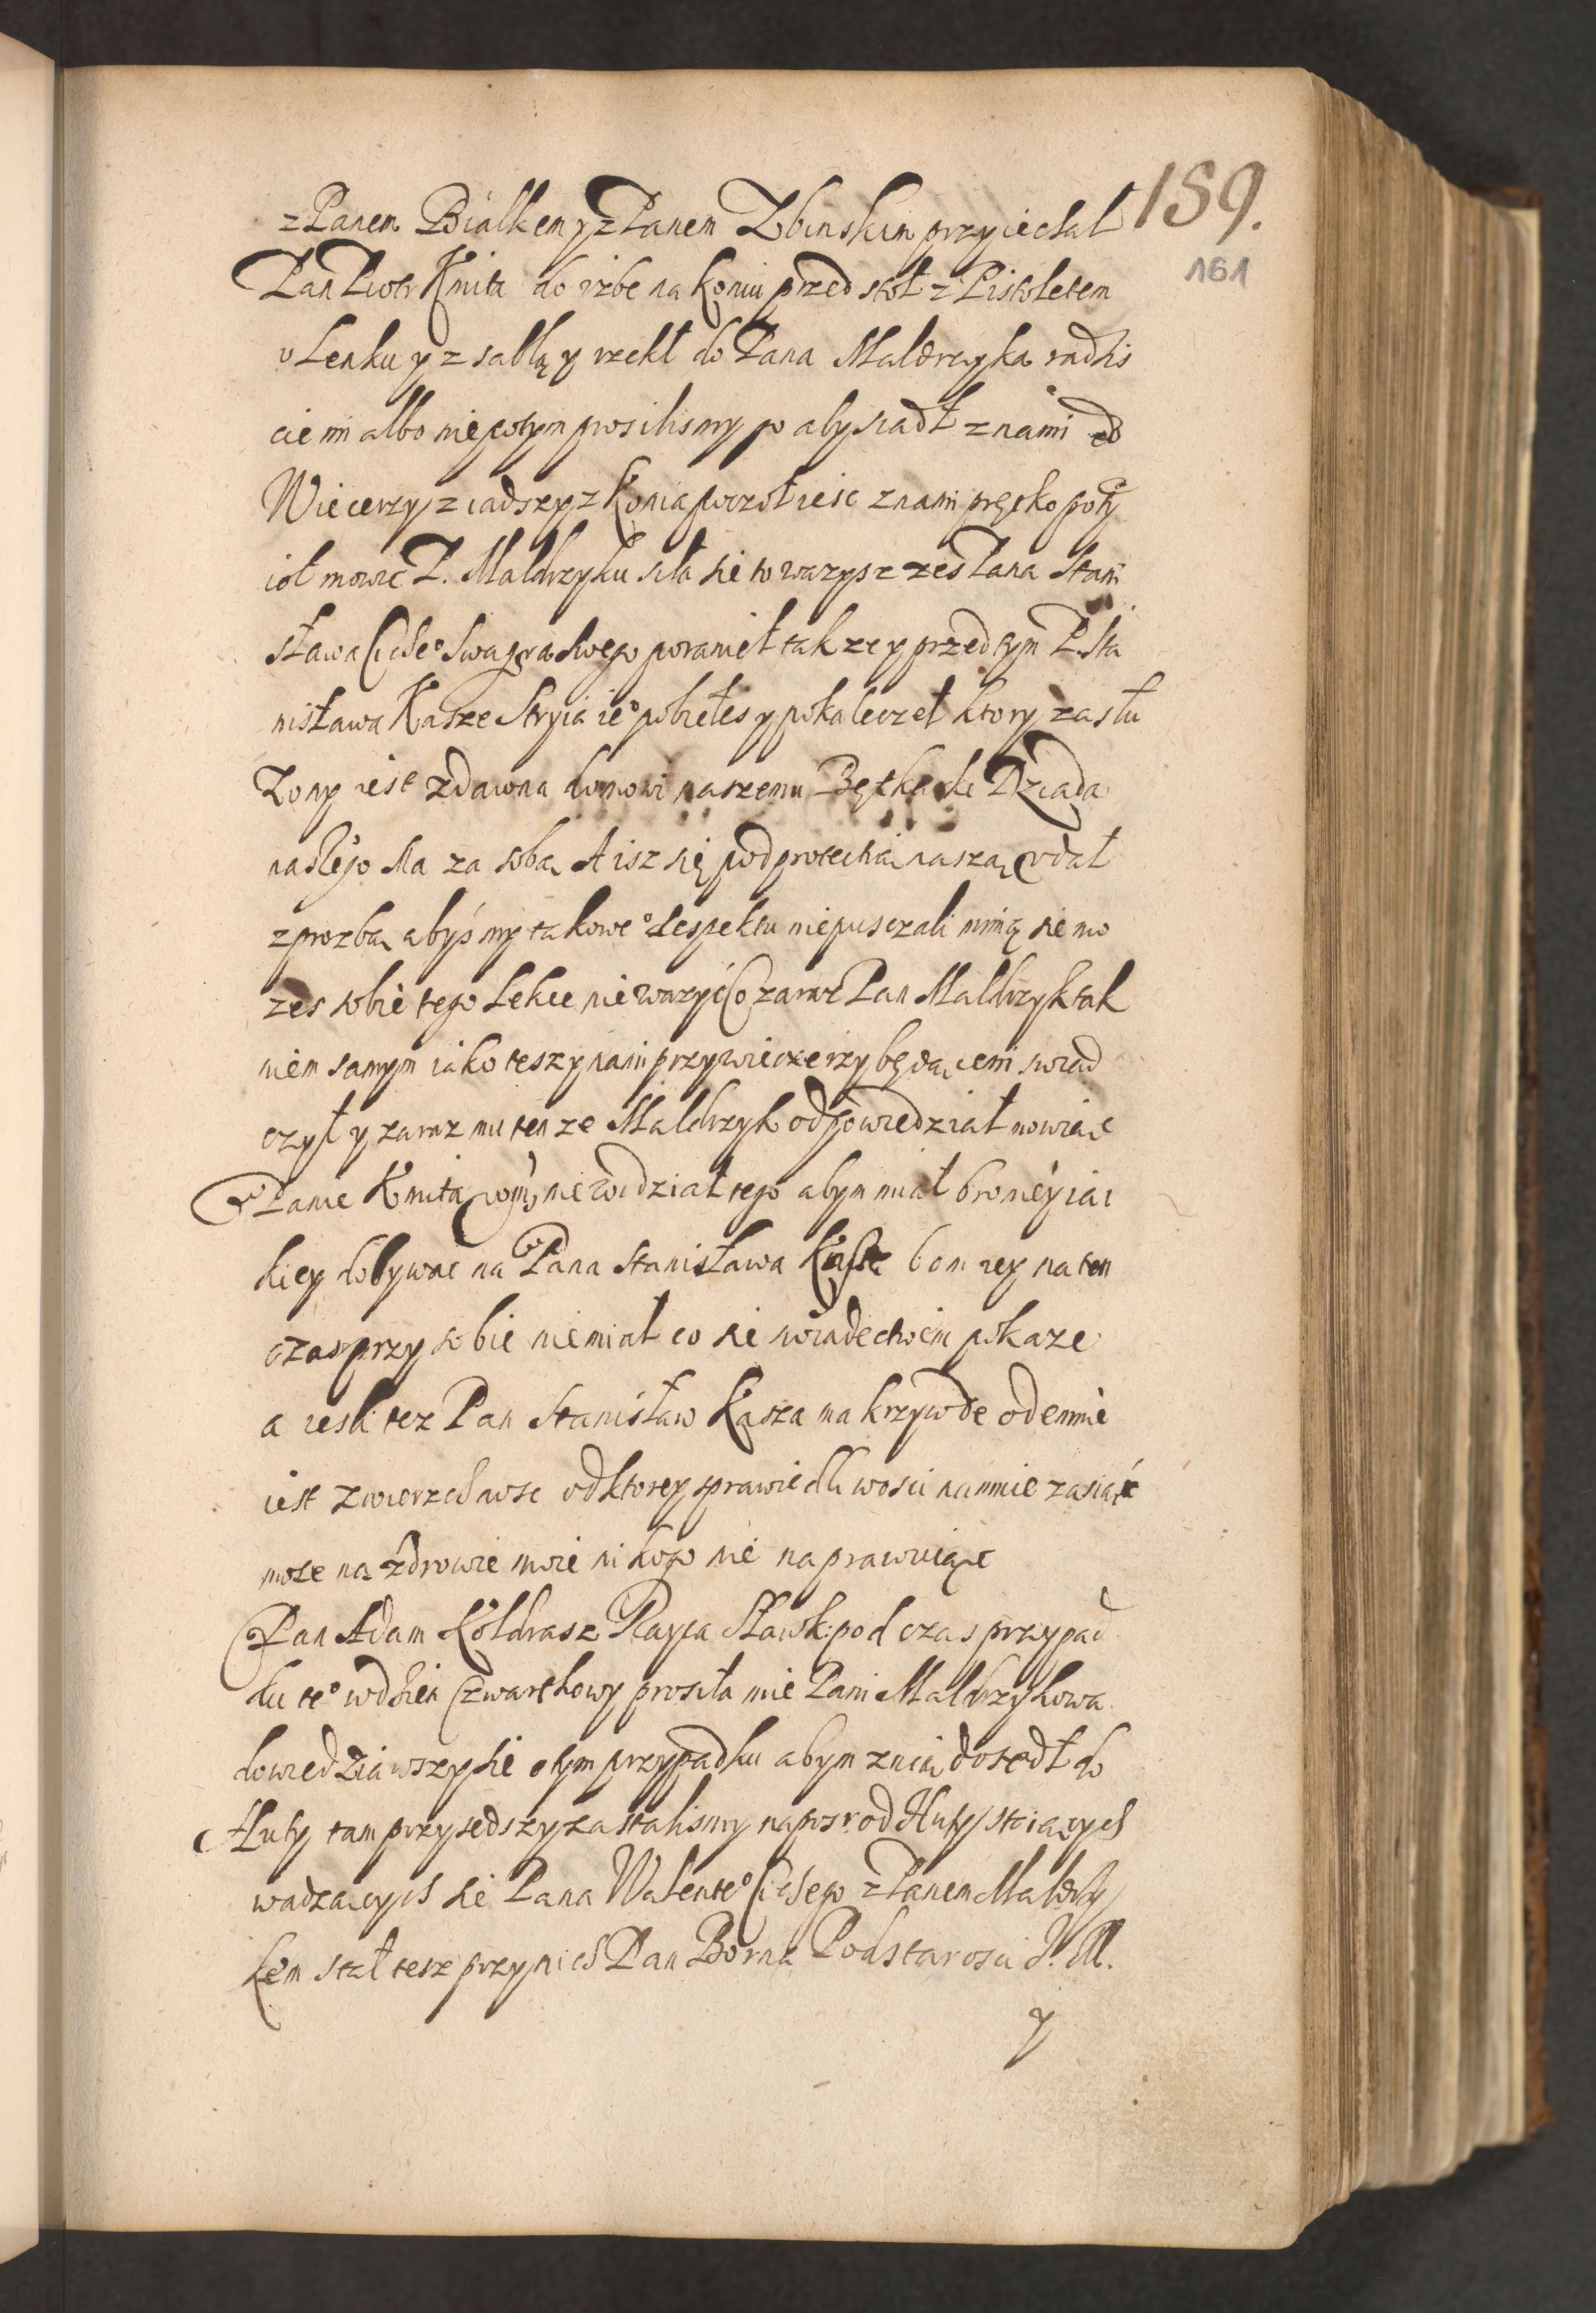 159.
161
z Panem Białkem y z Panem Zbinskim przyiechał
Pan Piotr Kmita do izbe na koniu przed stoł z Pistoletem
v Lenku y z sablą y rzekł do Pana Maldrzyka radzis
cie mi albo nie potym prosilismy go aby siadł z nami do
Wiecerzy z siadszy z Konia począł iesc z nami pręḱo poty
iął mowic P. Maldrzyku siła sie towarzysz zes Pana Stani
sława Cichego Swagra Swego poranieł takze y przed tym P. Sta
nisława Kasze Stryia iego pobiełes y pokaleczeł ktory zasłu
zony iest zdawna domowi naszemu Dziada
naszego ma za sobą A isz się pod protectią naszą vdał
z prozbą abysmy takowego despektu niepusczali mimą sie mo
zes sobie tego lekce nie wazyć Co zaraz Pan Maldrzyk tak
niem samym iako tesz y nami przy wieczerzy będącemi swiad
czył y zaraz mu tenze Maldrzyk odpowiedział mowiąc
Panie Kmita nie widział tego abym miał broniey iac
kiey dobywac na Pana Stanisława Kasze bom iey na ten
czas przy sobie niemiał co sie swiadectwem pokaze
a iesli tez Pan Stanisław Kasza ma krzywde odemnie
iest zwierzchnosc od ktorey sprawiedliwosci na mnie zasiąc
moze na zdrowie moie nikogo nie naprawuiąc
Pan Adam Kołdrasz Rayca Sławk: pod czas przypad
ku tego w dzien Czwartkowy prosiła mie Pani Maldrzykowa
dowiedziawszy sie o tym przypadku abym z nią doszedł do
Huty tam przyszedszy zastalismy naposrod Huty stoiących
wadzących sie Pana Walentego Cichego z Panem Maldrzy
kem stał tesz przy nich Pan Borna Podstarosci J. M.
y